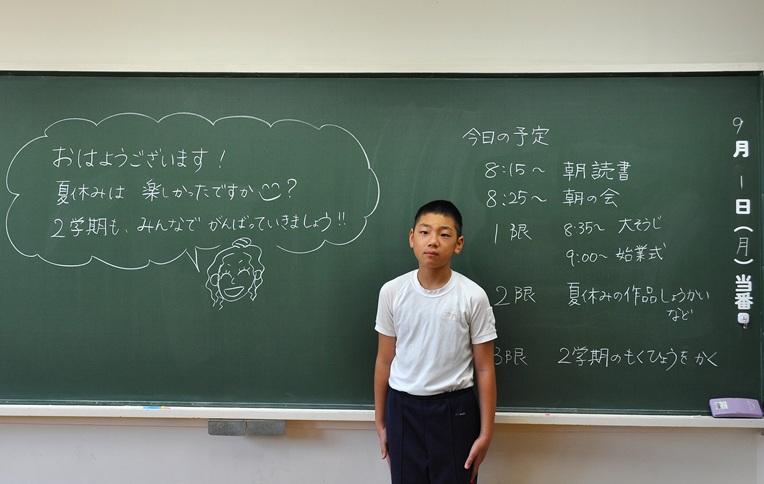 おはようございます!
夏休みは 楽しかったですか?
2学期も、みんなで がんばっていきましょう!!
今日の予定
8:15〜 朝読書
8:25〜 朝の会
1限 8:35〜 大そうじ
9:00〜 始業式
2限 夏休みの作品しょうかい
など
3限 2学期のもくひょうをかく
9月1日(月)当番